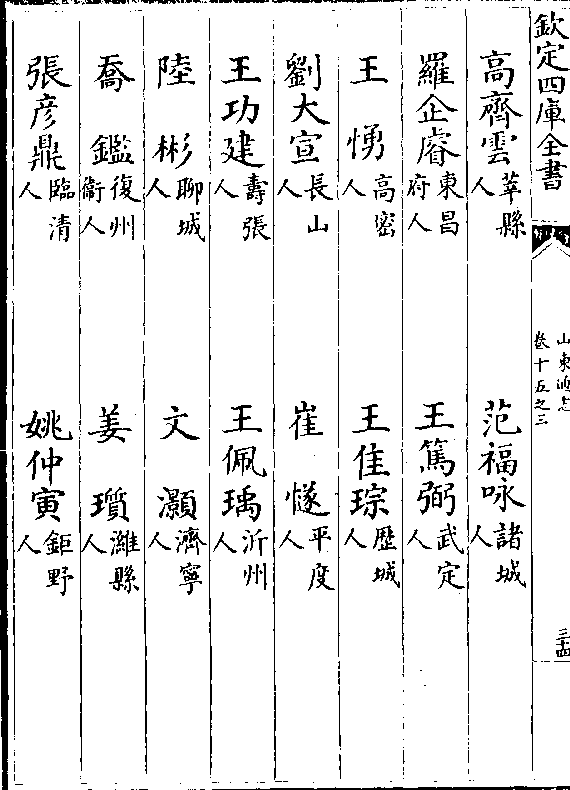 欽定四庫全書
山東通志
卷十五之三
三十四
高齊雲莘縣人 范福咏諸城人
羅企睿東昌府人 王篤弼武定人
王㥧高密人 王佳琮歷城人
劉大宣長山人 崔㷭平度人
王功建壽張人 王佩瑀沂州人
陸彬聊城人 文灝濟寧人
喬鑑復州衛人 姜瓆濰縣人
張彦鼎臨清人 姚仲寅鉅野人